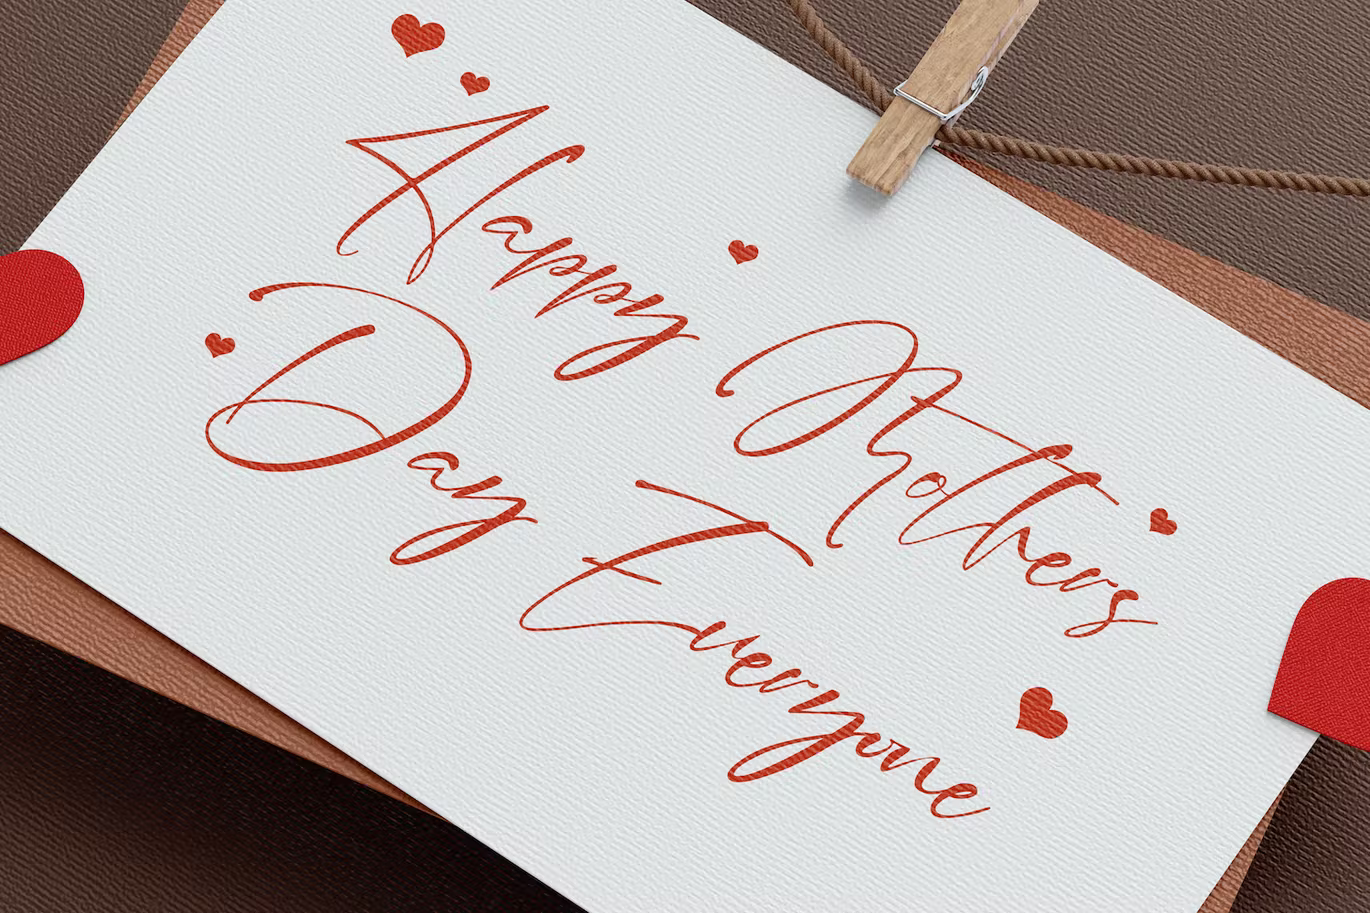 Happy Mothers
Day Everyone